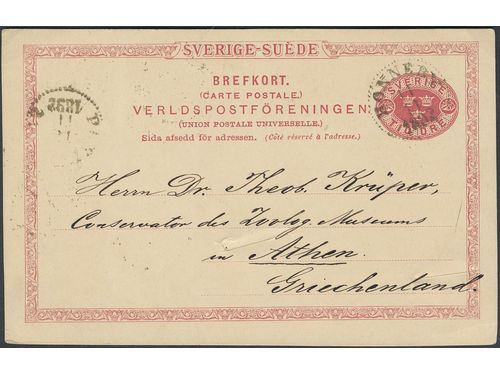 SVERIGE-SUÈDE
BREFKORT.
(CARTE POSTALE.)
VERLDSPOSTFÖRENINGEN
(UNION POSTALE UNIVERSELLE.)
Sida afsedd för adressen. (Côté réservé à l'adresse.)
SVERIGE
TIO ÖRE
1892
Herrn Dr. Theob. Krüper,
Conservator des Zoolog. Museums
in Athen.
Griechenland.